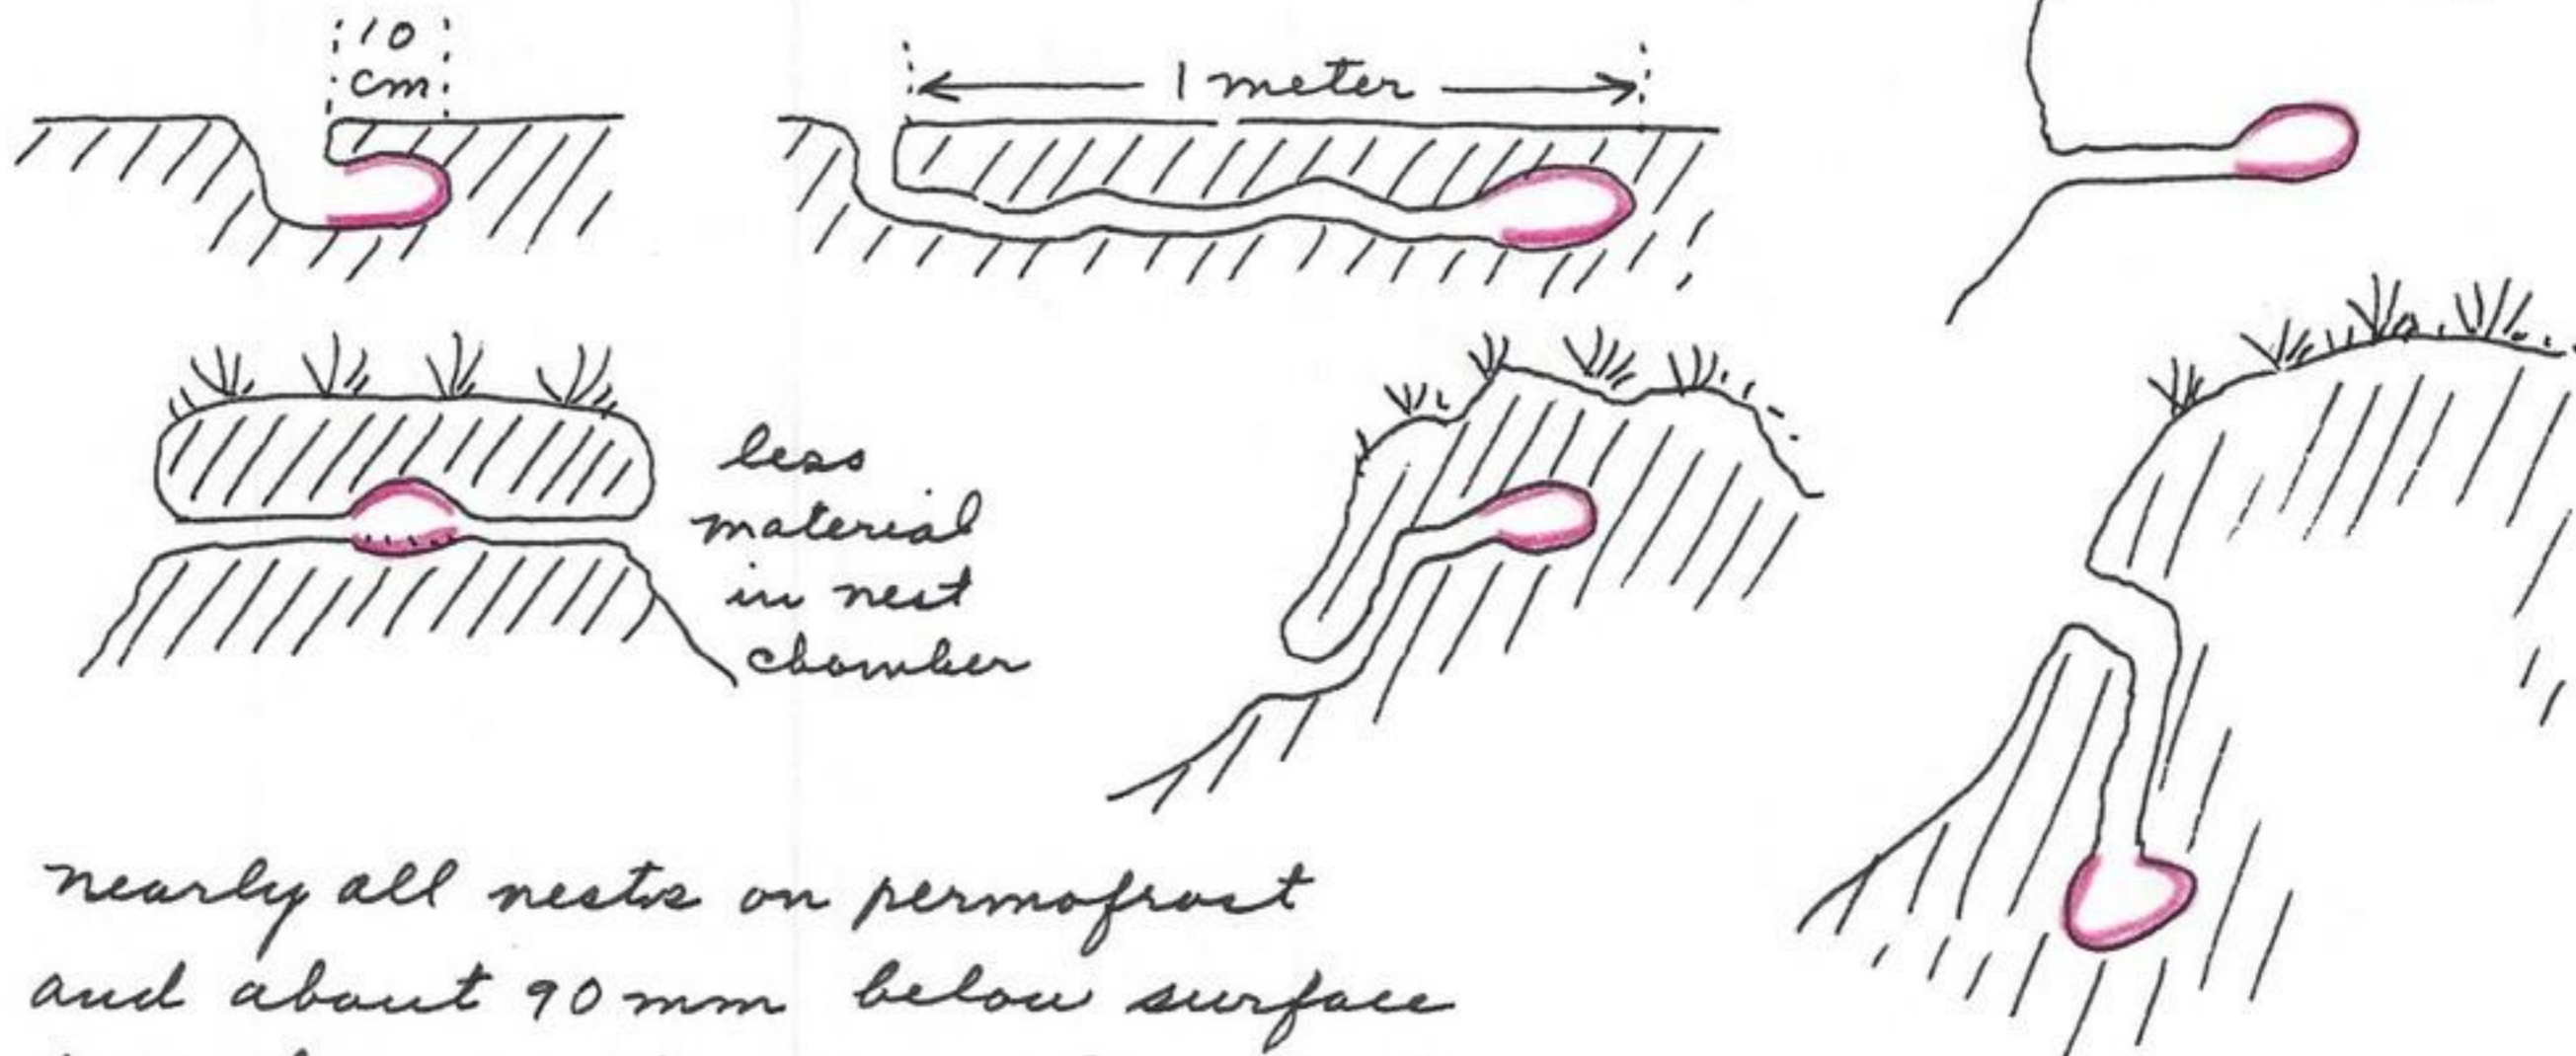 10
cm
1 meter
less
material
in nest
chamber
nearly all nests on permafrost
and about 90 mm below surface